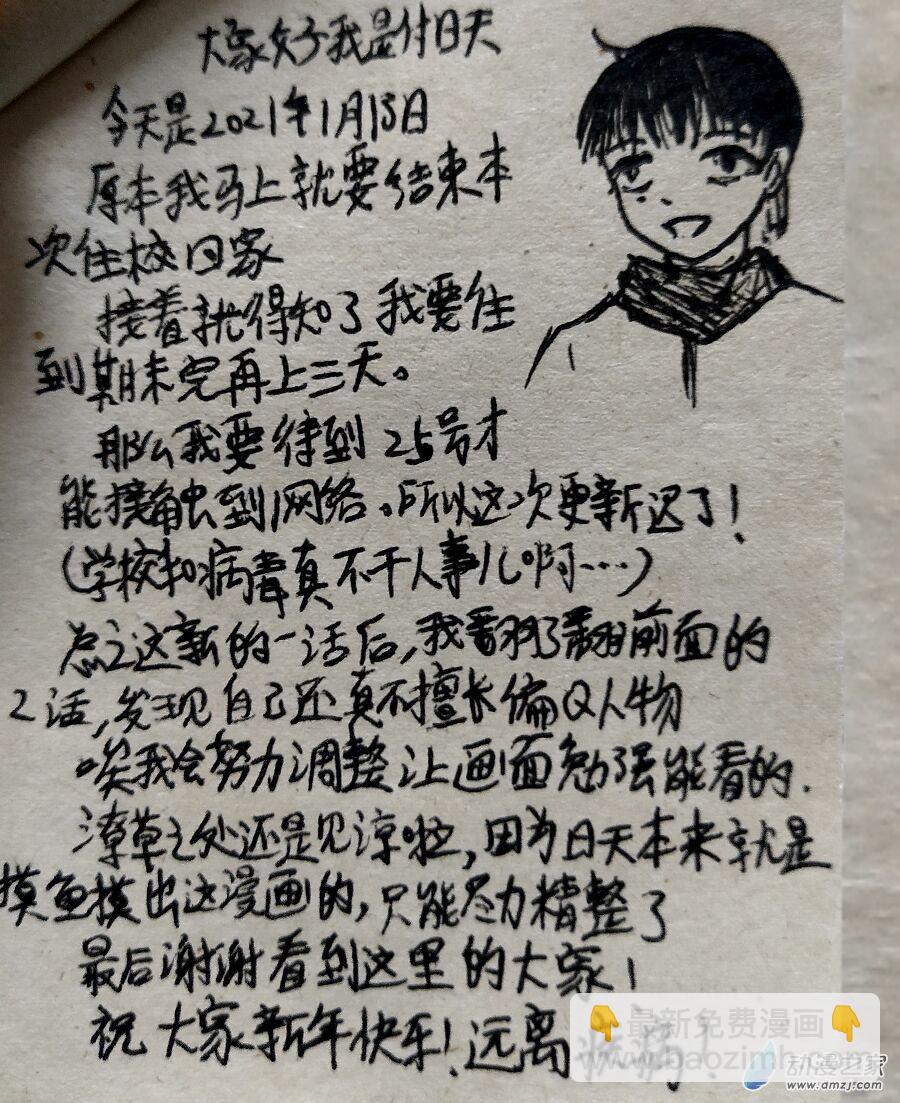 大家好我是付日天
今天是2021年1月15日
原本我马上就要结束本
次住校回家
接着就得知了我要住
到期末完再上三天。
那么我要待到25号才
能接触到网络。所以这次更新迟了!
(学校和病毒真不干人事儿啊…)
总之这新的一话后,我翻了翻前面的
2话,发现自己还真不擅长偏Q人物
唉我会努力调整让画面勉强能看的.
潦草之处还是见谅啦,因为日天本来就是
摸鱼摸出这漫画的,只能尽力精整了
最后谢谢看到这里的大家!
祝大家新年快乐!远离
最新免费漫画
www.baozimh.com
动漫之家
www.dmzj.com